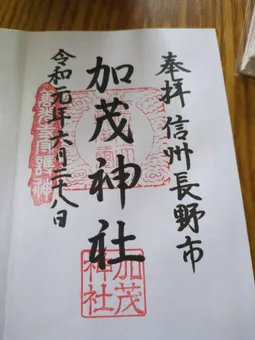 奉拝 信州長野市
加茂神社
令和元年六月二十八日
加茂
神社